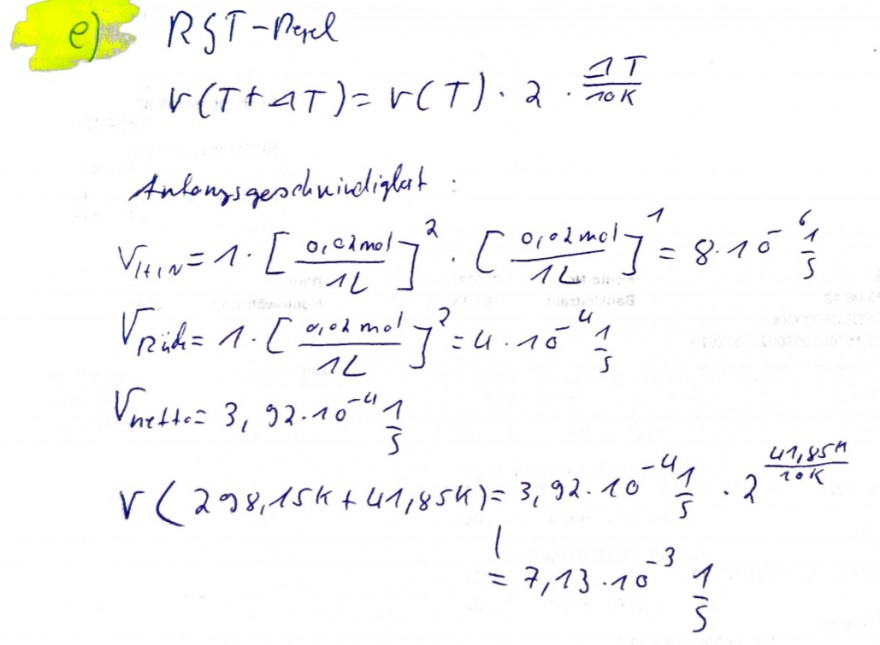 e) RGT-Regel
v(T+ΔT) = v(T) · 2 · ΔT/10K
Anfangsgeschwindigkeit :
V_Hin = 1 · [0,02mol/1L]^2 · [0,02mol/1L]^1 = 8·10^-6 1/s
V_Rück = 1 · [0,02mol/1L]^2 = 4·10^-4 1/s
V_netto = 3,92·10^-4 1/s
v(298,15K + 41,85K) = 3,92·10^-4 1/s · 2^(41,85K/10K)
= 7,13·10^-3 1/s